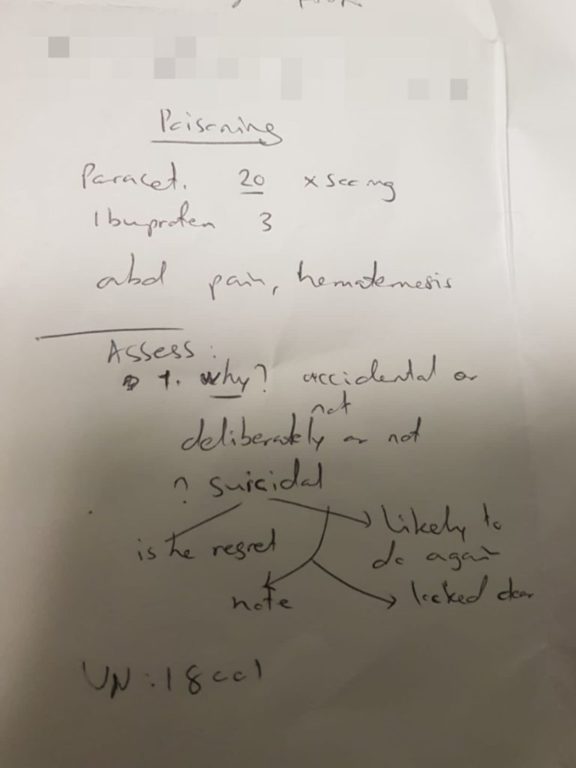 Poisoning
Paracet. 20 x 500 mg
Ibuprofen 3
abd pain, hematemesis
Assess:
1. why? accidental or
not
deliberately or not
? suicidal
is he regret
likely to
do again
note
locked door